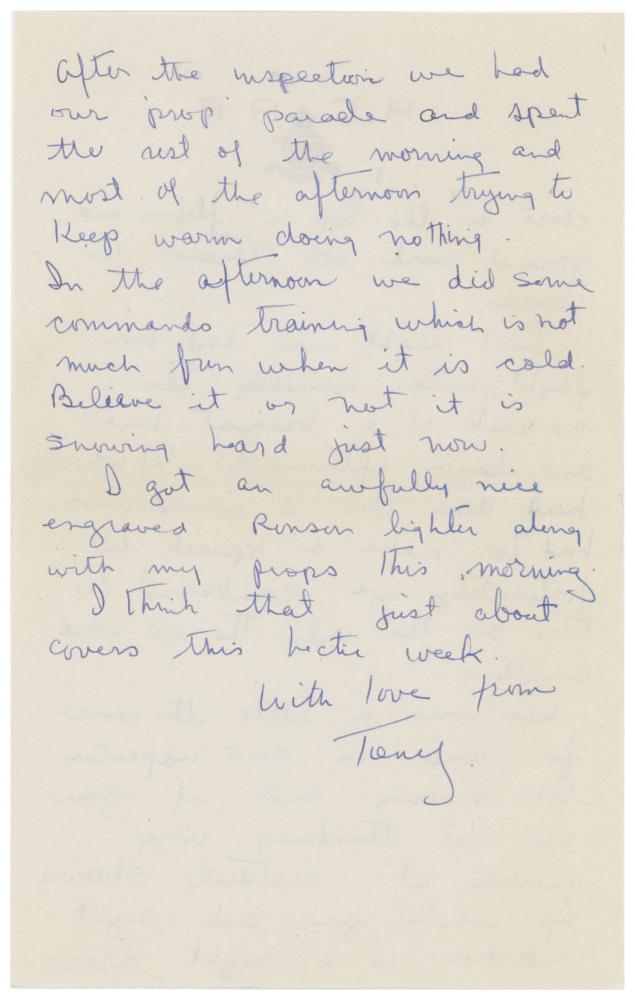 After the inspection we had
our 'prop' parade and spent
the rest of the morning and
most of the afternoon trying to
keep warm doing nothing.
In the afternoon we did some
commando training which is not
much fun when it is cold.
Believe it or not it is
snowing hard just now.
I got an awfully nice
engraved Ronson lighter along
with my props this morning.
I think that just about
covers this hectic week.
With love from
Tony